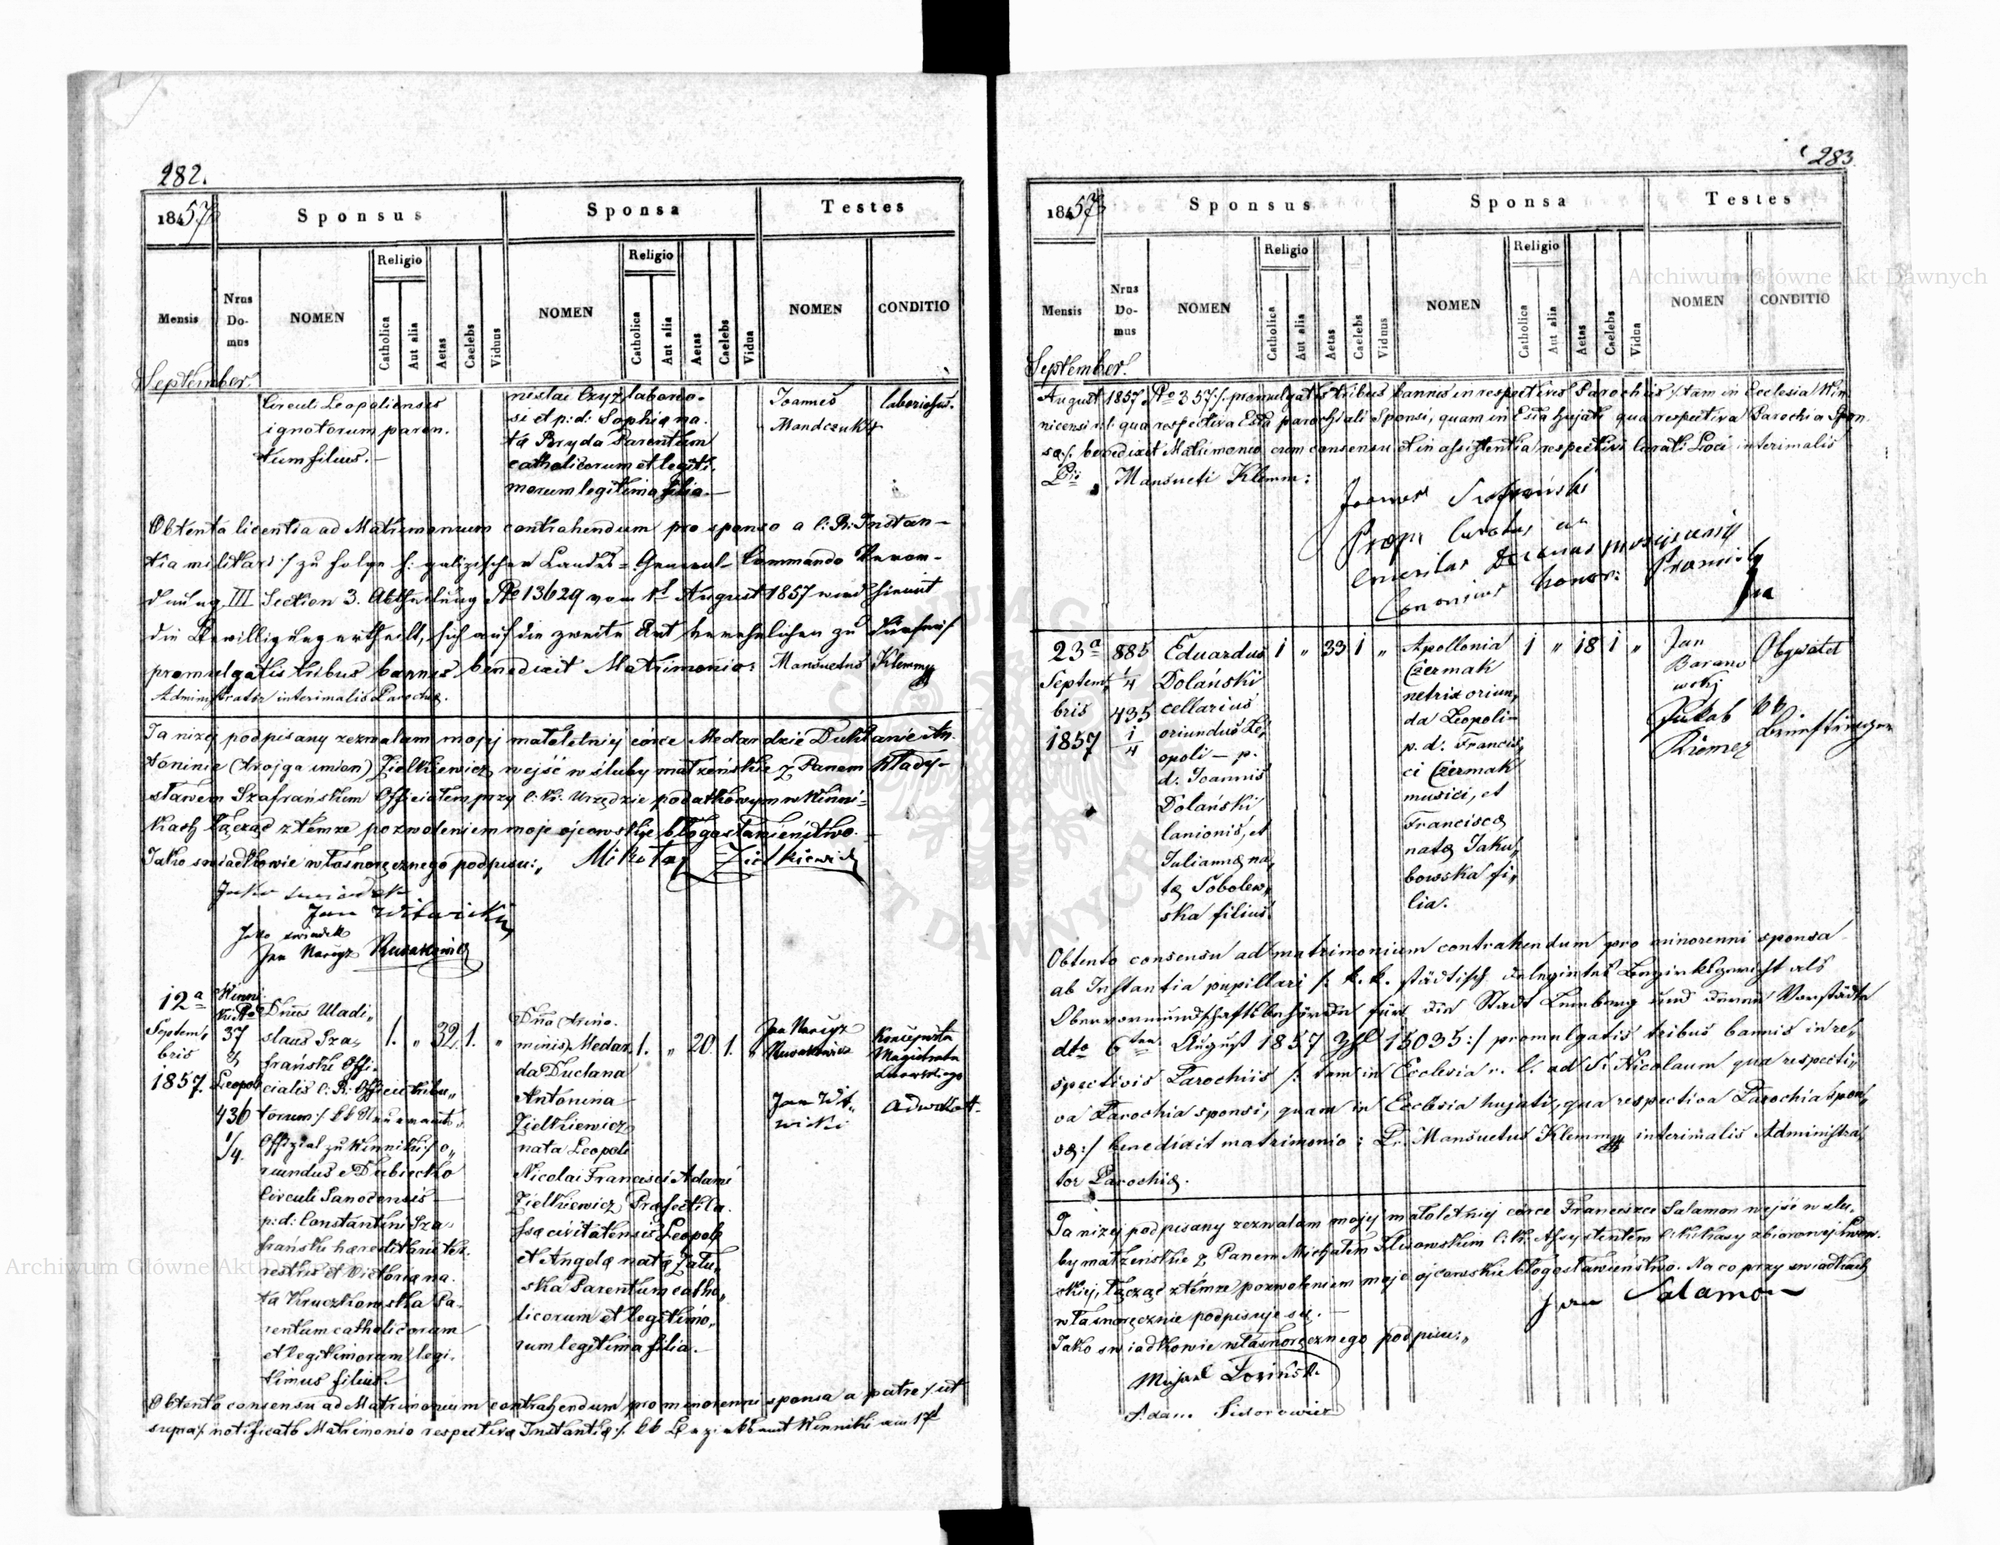 282.
1857
Sponsus
Sponsa
Testes
Mensis
Nrus Domus
NOMEN
Religio
Catholica
Aut alia
Aetas
Caelebs
Viduus
NOMEN
Religio
Catholica
Aut alia
Aetas
Caelebs
Vidua
NOMEN
CONDITIO
September.
Circuli Leopoliensis
ignotorum paren.
tum filius.
neslai Czyz laborio-
si et p: d: Sophia na.
ta Bryda Parentum
catholicorum et legiti.
morum legitima filia.
Joannes
Mandczuk
laboriosus.
Obtenta licentia ad Matrimonium contrahendum pro sponso a C: R: Instan-
tia militari :/ zu folge h: galizischer Landes-General-Commando Verord-
nung III Section 3. Abtheilung No 13629 vom August 1857 wird hiemit
die Bewilligung ertheilt, sich auf die zweite Art verehelichen zu dürfen /
promulgatis tribus bannis benedixit Matrimonio: Mansuetus Klemm
Administrator interimalis Parochiae.
Ja niżej podpisany zezwalam mojej małoletniej córce Medardzie Duklanie An-
toninie (trojga imion) Zietkiewicz wejść w śluby małżeńskie z Panem Włady-
sławem Szafrańskim Officiałem przy C: K: Urzędzie podatkowym w Winni-
kach łącząc z temże pozwoleniem moje ojcowskie błogosławieństwo.
Jako świadkowie własnoręcznego podpisu:, Mikołaj Zietkiewicz
Jako świadek
Jan Witwicki
Jako świadek
Jan Narcyz
12a
Septem,
bris
1857.
Winni
ki No
37
Leopoli
436
1/4.
Dnus Uladi,,
slaus Sza,
frański Offi-
cialis C. R. Officii tribu,,
torum :/ kk Steueramts
Offizial zu Winniki :/ o,,
riundus e Dabrecko
Circuli Sanocensis
p: d: Constantini Sza-
frański haereditarii ter.
restris et Victoria na.
ta Kruczkowska Pa-
rentum catholicorum
et legitimorum legi.
timus filius.
1. „ 32 1. „
Dna trino.
minis Medar.
da Duclana
Antonina
Zietkiewicz
nata Leopoli
Nicolai Francisci Adami
Zietkiewicz Praefecti Ca.
ssae civitatensis Leopoli
et Angela nata Zału,,
ska Parentum catho,,
licorum et legitimo,,
rum legitima filia.
1. „ 20 1. „
Jan Narcyz
Koncepista
Magistratu
Lwowskiego
Jan Wit,,
wicki
Adwokat.
Obtento consensu ad Matrimonium contrahendum pro minorenni sponsa a patre / ut
supra / notificato Matrimonio respectivae Instantiae :/ kk Bezirksamt Winniki am 17t
283
1857
Sponsus
Sponsa
Testes
Mensis
Nrus Domus
NOMEN
Religio
Catholica
Aut alia
Aetas
Caelebs
Viduus
NOMEN
Religio
Catholica
Aut alia
Aetas
Caelebs
Vidua
NOMEN
CONDITIO
September.
August 1857 No 357 :/ promulgatis tribus bannis in respectivis Parochiis :/ tam in Ecclesia Win
nicensi r: l: qua respectiva Eccla parochiali Sponsi, quam in Eccla hujati qua respectiva Parochia Spon.
sae :/ benedixit Matrimonio cum consensu et in assistentia respectivi Curati Loci interimalis
Mansueti Klemm:
Emeritus Decanus
Canonicus honor:
23a
Septem,
bris
1857
885
1/4
435
1/4
Eduardus
Dolański
cellarius
oriundus Le,
opoli – p.
d. Joannis
Dolański
lanionis, et
Julianna na,
ta Sobolew,,
ska filius.
1 „ 33 1 „
Apollonia
Czermak
netrix oriun,
da Leopoli–
p. d. Francis,
ci Czermak
musici, et
Francisca
nata Jaku,,
bowska fi,,
lia.
1 „ 18 1 „
Jan
Barano
wski
Obywatel
Jakob
Obtento consensu ad matrimonium contrahendum pro minorenni sponsa
ab Instantia pupillari /: k. k. städtisch delegirtes Bezirksgericht als
Obervormundschaftsbehörde für die Stadt Lemberg und deren Vorstädte
dto 6ten August 1857 Zhl 15035 :/ promulgatis tribus bannis in re,
spectivis Parochiis /: tam in Ecclesia r. l. ad S. Nicolaum qua respecti,
va Parochia sponsi, quam in Ecclesia hujati, qua respectiva Parochia spon,
sae :/ benedixit matrimonio: P. Mansuetus Klemm interimalis Administra,
tor Parochiae.
Ja niżej podpisany zezwalam mojej małoletniej córce Franciszce Salamon wejść w ślu,
by małżeńskie z Panem Michałem Klisowskim C. K. Assystentem C. K. kasy zbiorowej Lwow.
skiej, łącząc z temże pozwoleniem moje ojcowskie błogosławieństwo. Na co przy świadkach
własnoręcznie podpisuje się.
Jan Salamon
Jako świadkowie własnoręcznego podpisu:,,
Michał Łoziński
Adam Sidorowicz
Archiwum Główne Akt Dawnych
Archiwum Główne Akt Dawnych